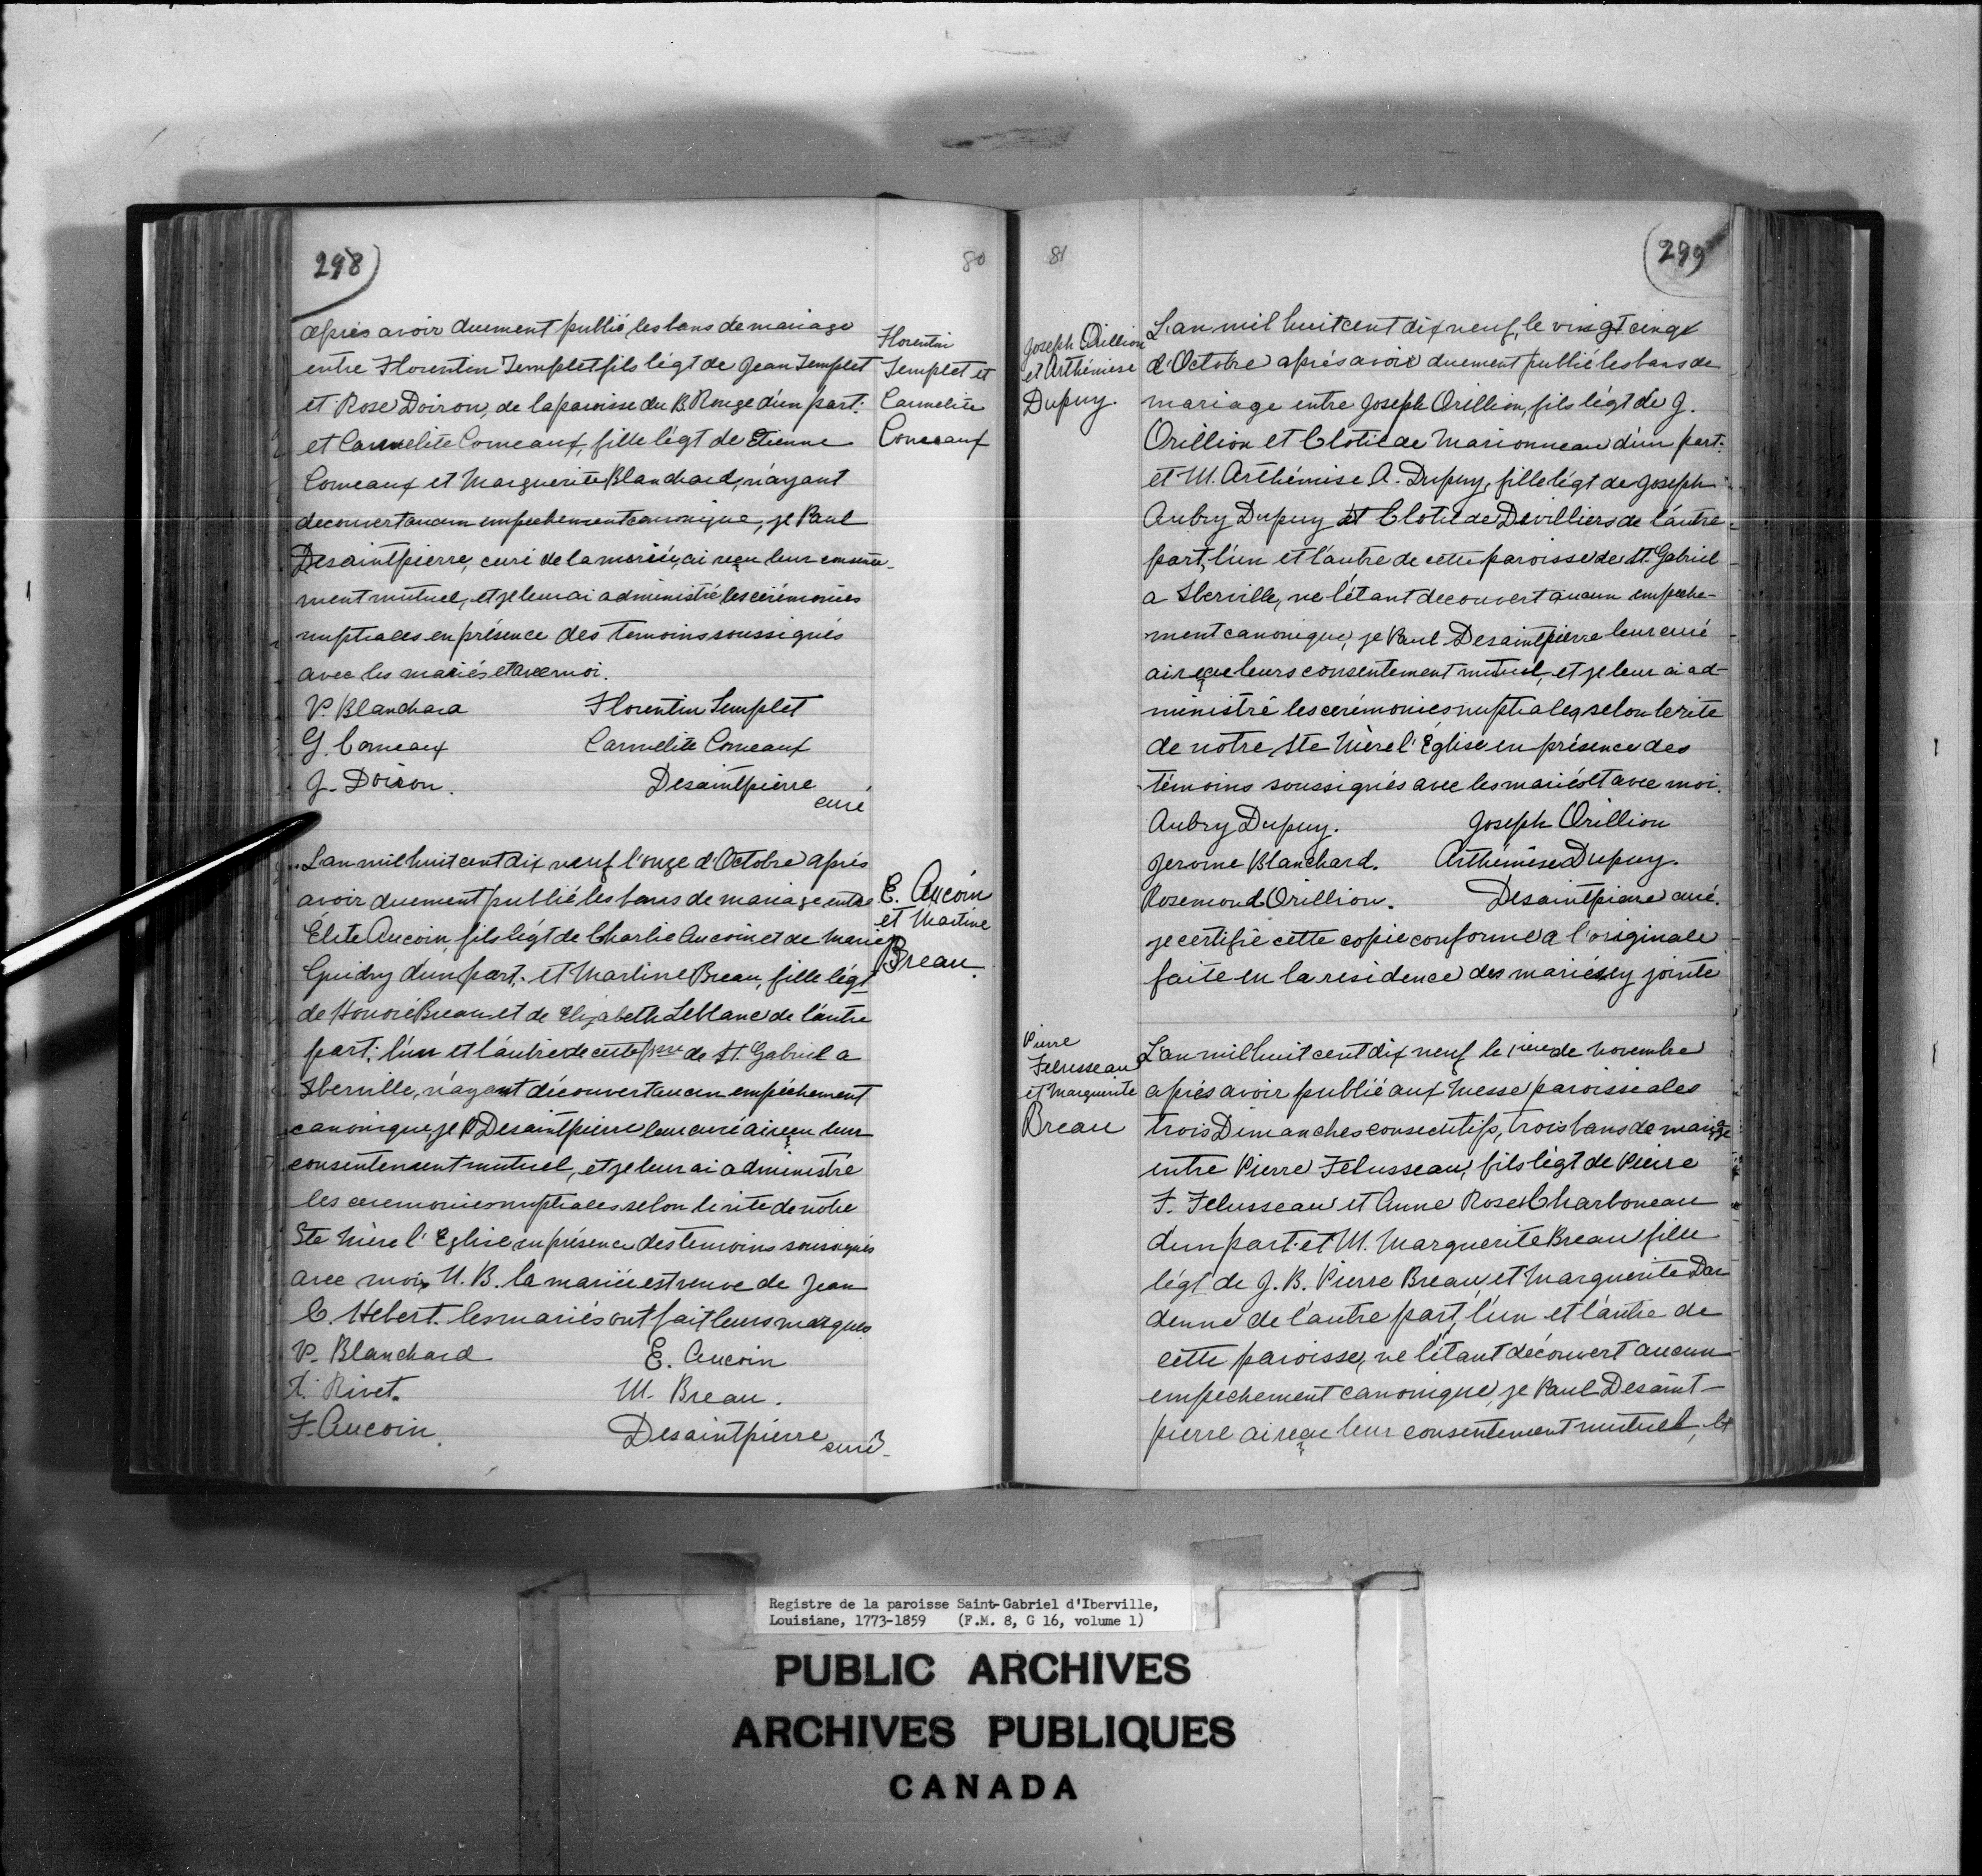 298
80
après avoir duement publié les bans de mariage
entre Florentin Templet fils légt de Jean Templet
et Rose Doiron, de la paroisse du B. Rouge d'un part.
et Carmelite Comeaux, fille légt de Etienne
Comeaux et Marguerite Blanchard, n'ayant
decouvert aucun empechement canonique, je Paul
Desaintpierre, curé de la mariée, ai reçu leur consente-
ment mutuel, et je leur ai administré les cérémonies
nuptiales en présence des temoins soussignés
avec les mariés et avec moi.
P. Blanchard Florentin Templet
G. Comeaux Carmelite Comeaux
J. Doiron. Desaintpierre
curé
Florentin
Templet et
Carmelite
Comeaux
L'an mil huit cent dix neuf l'onze d'Octobre après
avoir duement publié les bans de mariage entre
Élite Aucoin fils légt de Charlie Aucoin et de Marie
Guidry d'un part. et Martine Breau, fille légt
de Honoré Breau et de Elizabeth Leblanc de l'autre
part. l'un et l'autre de cette psse de St. Gabriel a
Iberville, n'ayant découvert aucun empéchement
canonique, je P Desaintpierre leur curé ai reçu leur
consentement mutuel, et je leur ai administré
les ceremonies nuptiales selon le rite de notre
Ste Mère l'Eglise en présence des temoins soussignés
avec moi, N. B. la mariée est veuve de Jean
C. Hebert. les mariés ont fait leurs marques
P. Blanchard E. Aucoin
Rivet. M. Breau.
F. Aucoin. Desaintpierre curé
E. Aucoin
et Martine
Breau.
81
299
Joseph Orillion
et Arthémise
Dupuy.
L'an mil huit cent dix neuf, le vingt cinq
d'Octobre après avoir duement publié les bans de
mariage entre Joseph Orillion, fils légt de J.
Orillion et Clotilde Marionneau d'un part.
et M. Arthémise A. Dupuy, fille légt de Joseph
Aubry Dupuy et Clotilde Devilliers de l'autre
part, l'un et l'autre de cette paroisse de St. Gabriel
a Iberville, ne l'étant decouvert aucun empeche-
ment canonique, je Paul Desaintpierre leur curé
ai reçu leurs consentement mutuel, et je leur ai ad-
ministré les cerémonies nuptiales selon le rite
de notre Ste Mère l'Église en présence des
témoins soussignés avec les mariés et avec moi.
Aubry Dupuy. Joseph Orillion
Jerome Blanchard. Arthémise Dupuy.
Rosemond Orillion. Desaintpierre curé.
je certifie cette copie conforme a l'originale
faite en la residence des mariés ey jointe
Pierre
Felusseau
et Marguerite
Breau
L'an mil huit cent dix neuf le 1ier de novembre
après avoir publié aux Messe paroissiales
trois Dimanches consecutifs, trois bans de mariage
entre Pierre Felusseau, fils légt de Pierre
F. Felusseau et Anne Rose Charboneau
d'un part. et M. Marguerite Breau fille
légt de J. B. Pierre Breau et Marguerite Dar
denne de l'autre part, l'un et l'autre de
cette paroisse, ne l'étant découvert aucun
empechement canonique, je Paul Desaint-
pierre ai reçu leur consentement mutuel, et
Registre de la paroisse Saint-Gabriel d'Iberville,
Louisiane, 1773-1859 (F.M. 8, G 16, volume 1)
PUBLIC ARCHIVES
ARCHIVES PUBLIQUES
CANADA